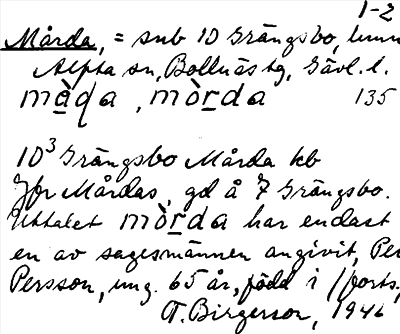 1-2
Mårda, = sub 10 Grängsbo,
Alfta sn, Bollnäs tg, Gävl. l.
mȧqa, mòrda 135
10³ Grängsbo Mårda kb
Jfr Mårdas, gd å 7 Grängsbo.
Uttalet mòrda har endast
en av sagesmännen angivit, Per
Persson, ung. 65 år, född i /forts.,
T. Birgerson, 1946